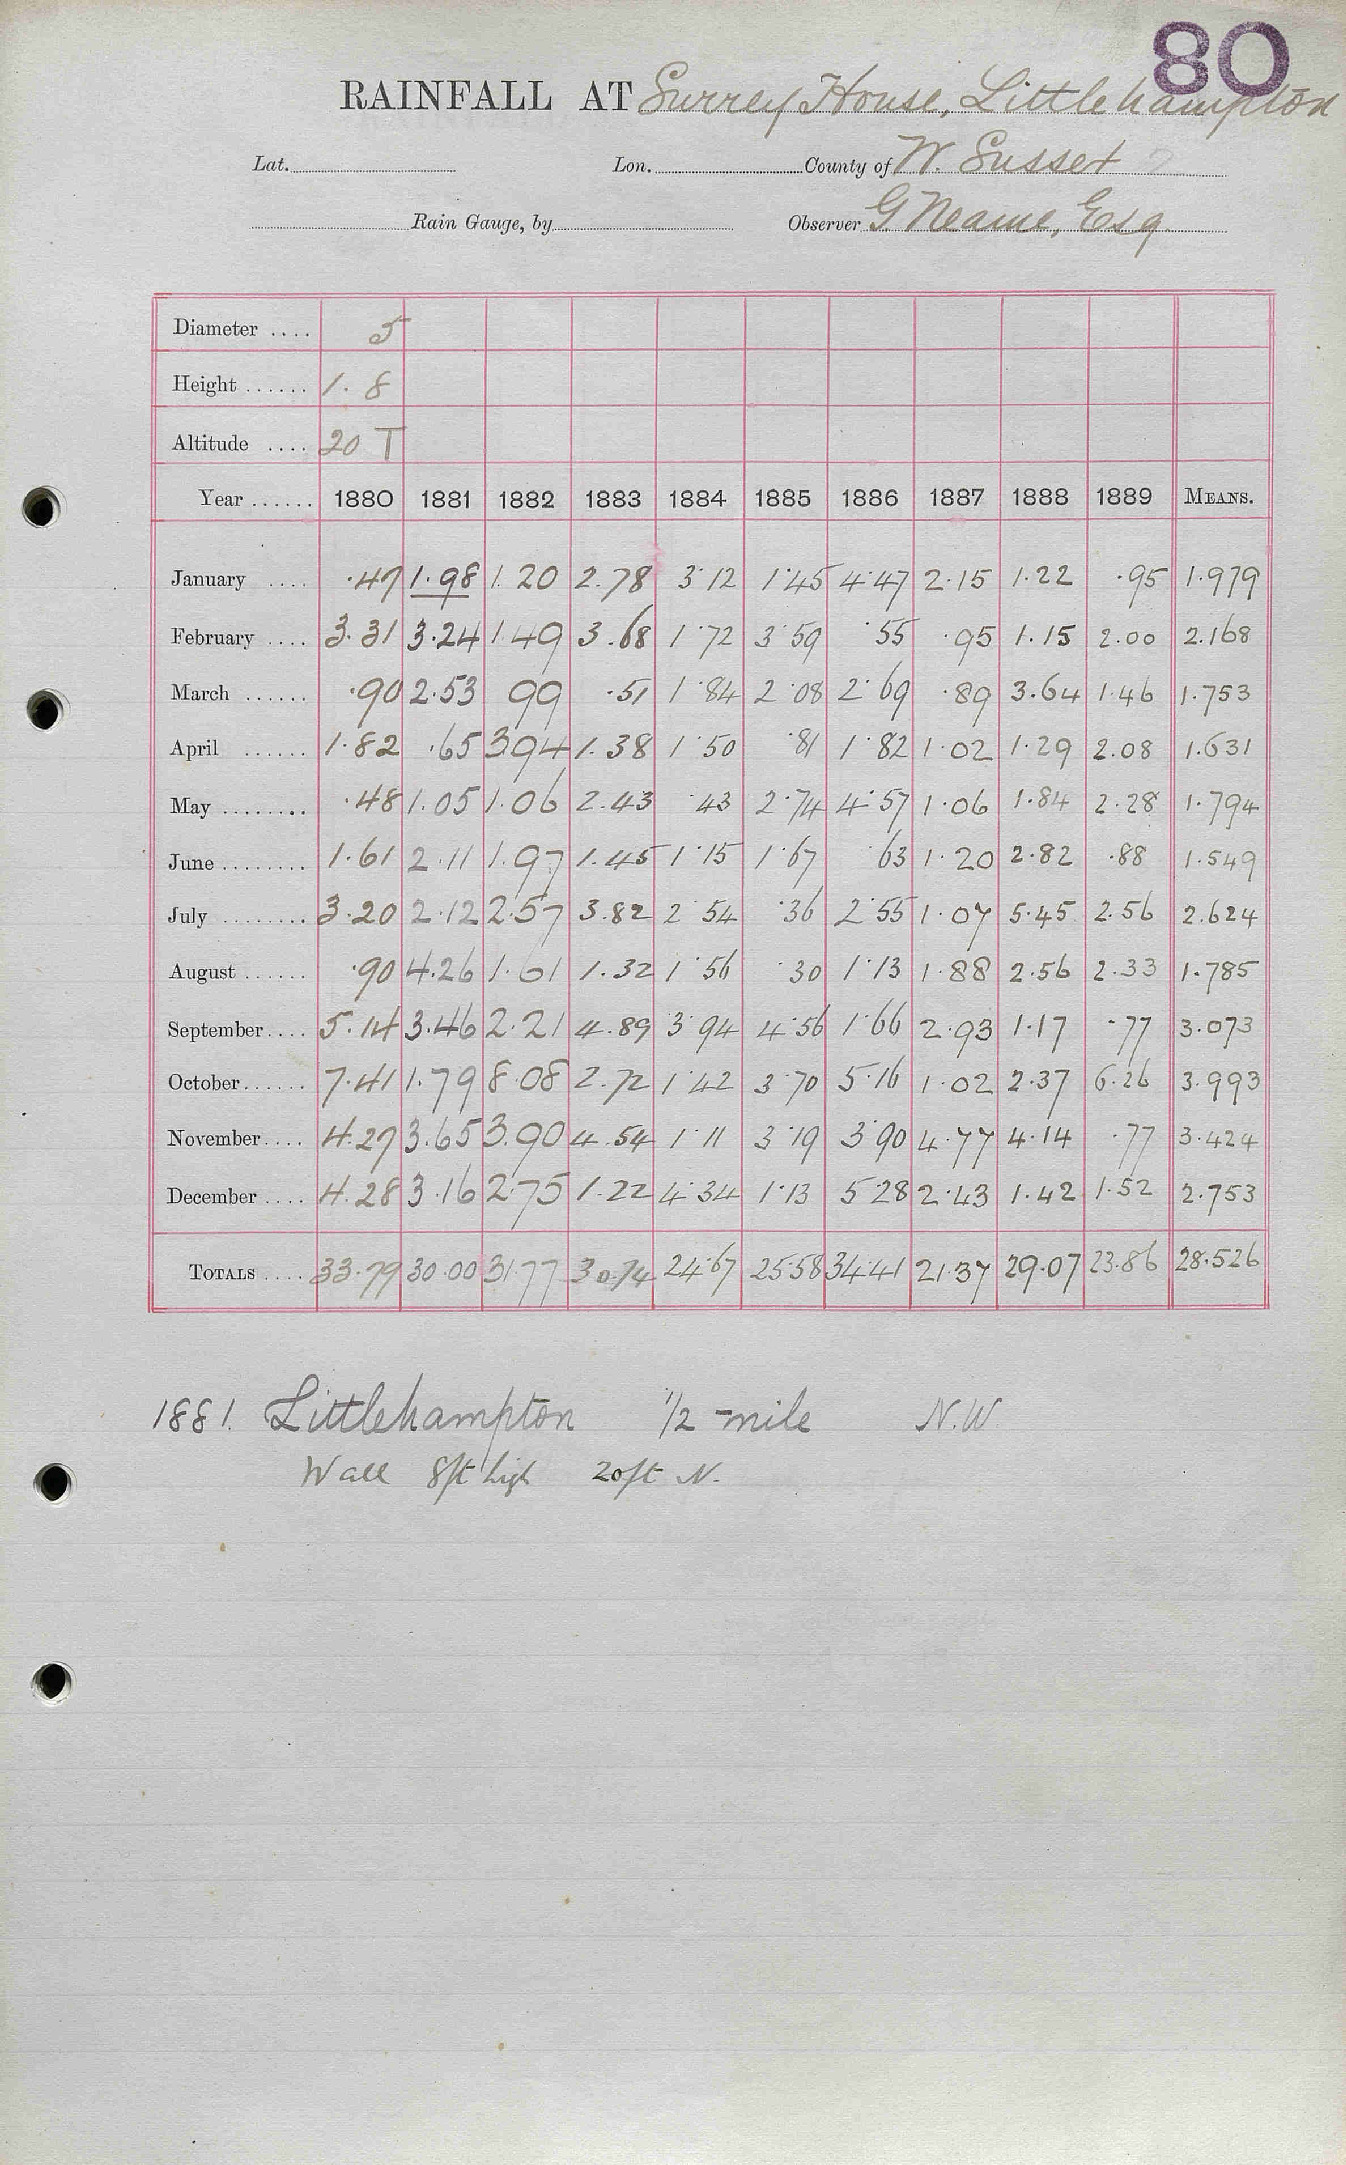 80
RAINFALL AT Surrey House, Littlehampton
Lat. Lon. County of W. Sussex
Rain Gauge, by Observer G Neame, Esq
Diameter .... 5
Height ...... 1. 8
Altitude .... 20 T
Year ...... 1880 1881 1882 1883 1884 1885 1886 1887 1888 1889 MEANS.
January .... ·47 1.98 1.20 2.78 3·12 1·45 4·47 2·15 1.22 ·95 1.979
February .... 3.31 3.24 1.49 3.68 1·72 3·59 ·55 ·95 1.15 2.00 2.168
March ...... ·90 2.53 99 ·51 1·84 2·08 2·69 ·89 3.64 1.46 1.753
April ...... 1.82 .65 394 1.38 1·50 ·81 1·82 1·02 1·29 2.08 1.631
May ........ ·48 1.05 1.06 2.43 ·43 2·74 4·57 1·06 1.84 2·28 1.794
June ........ 1.61 2.11 1.97 1.45 1·15 1·67 ·63 1·20 2.82 .88 1.549
July ........ 3.20 2.12 2.57 3.82 2·54 ·36 2·55 1·07 5.45 2.56 2.624
August ...... ·90 4.26 1.61 1.32 1·56 ·30 1·13 1·88 2.56 2.33 1.785
September .... 5.14 3.46 2.21 4.89 3·94 4·56 1·66 2·93 1.17 ·77 3.073
October ...... 7.41 1.79 8.08 2.72 1·42 3·70 5·16 1·02 2.37 6.26 3.993
November .... 4.27 3.65 3.90 4.54 1·11 3·19 3·90 4·77 4.14 ·77 3.424
December .... 4.28 3.16 2.75 1.22 4·34 1·13 5·28 2·43 1.42 1.52 2.753
TOTALS .... 33.79 30.00 31.77 30.74 24·67 25·58 34·41 21·37 29.07 23.86 28.526
1881. Littlehampton 1/2 - mile N.W.
Wall 8ft high 20ft N.